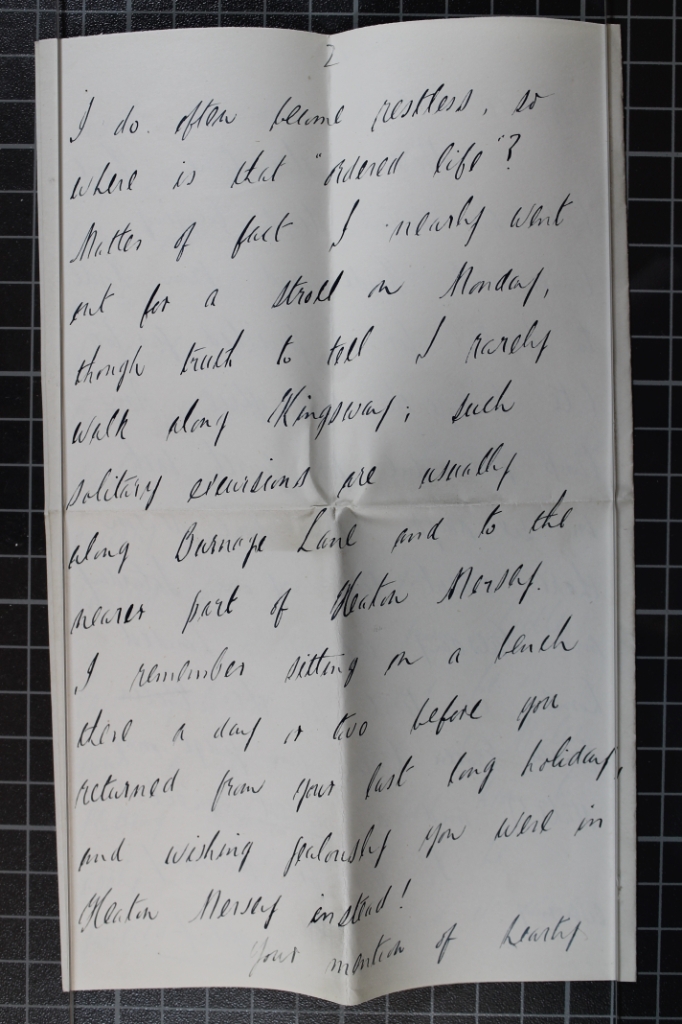 2
I do often become restless, so
where is that "ordered life"?
Matter of fact I nearly went
out for a stroll on Monday,
though truth to tell I rarely
walk along Kingsway; such
solitary excursions are usually
along Burnage Lane and to the
nearer part of Heaton Mersey.
I remember sitting on a bench
there a day or two before you
returned from your last long holiday,
and wishing jealously you were in
Heaton Mersey instead!
Your mention of hearty